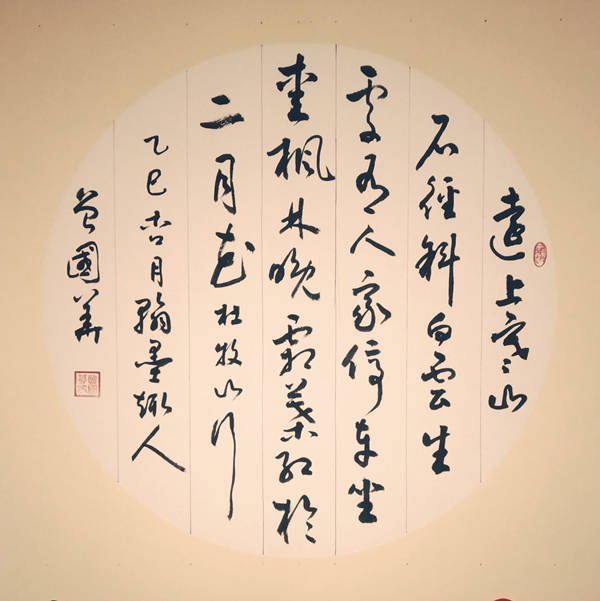 遠上寒山
石徑斜白雲生
處有人家停車坐
愛楓林晚霜葉紅於
二月花杜牧山行
乙巳杏月翰墨人
曾國華